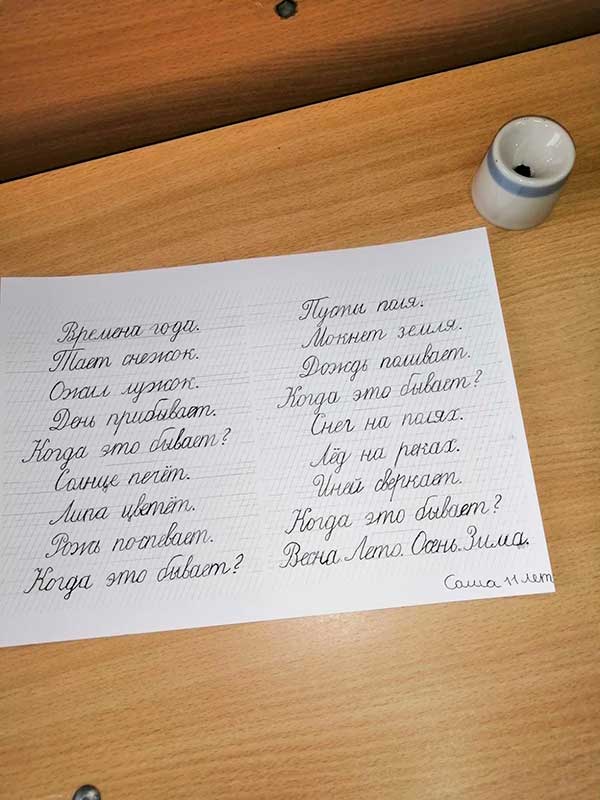 Времена года.
Тает снежок.
Ожил лужок.
День прибывает.
Когда это бывает?
Солнце печёт.
Липа цветёт.
Рожь поспевает.
Когда это бывает?
Пусты поля.
Мокнет земля.
Дождь поливает.
Когда это бывает?
Снег на полях.
Лёд на реках.
Иней сверкает.
Когда это бывает?
Весна. Лето. Осень. Зима.
Саша 11 лет